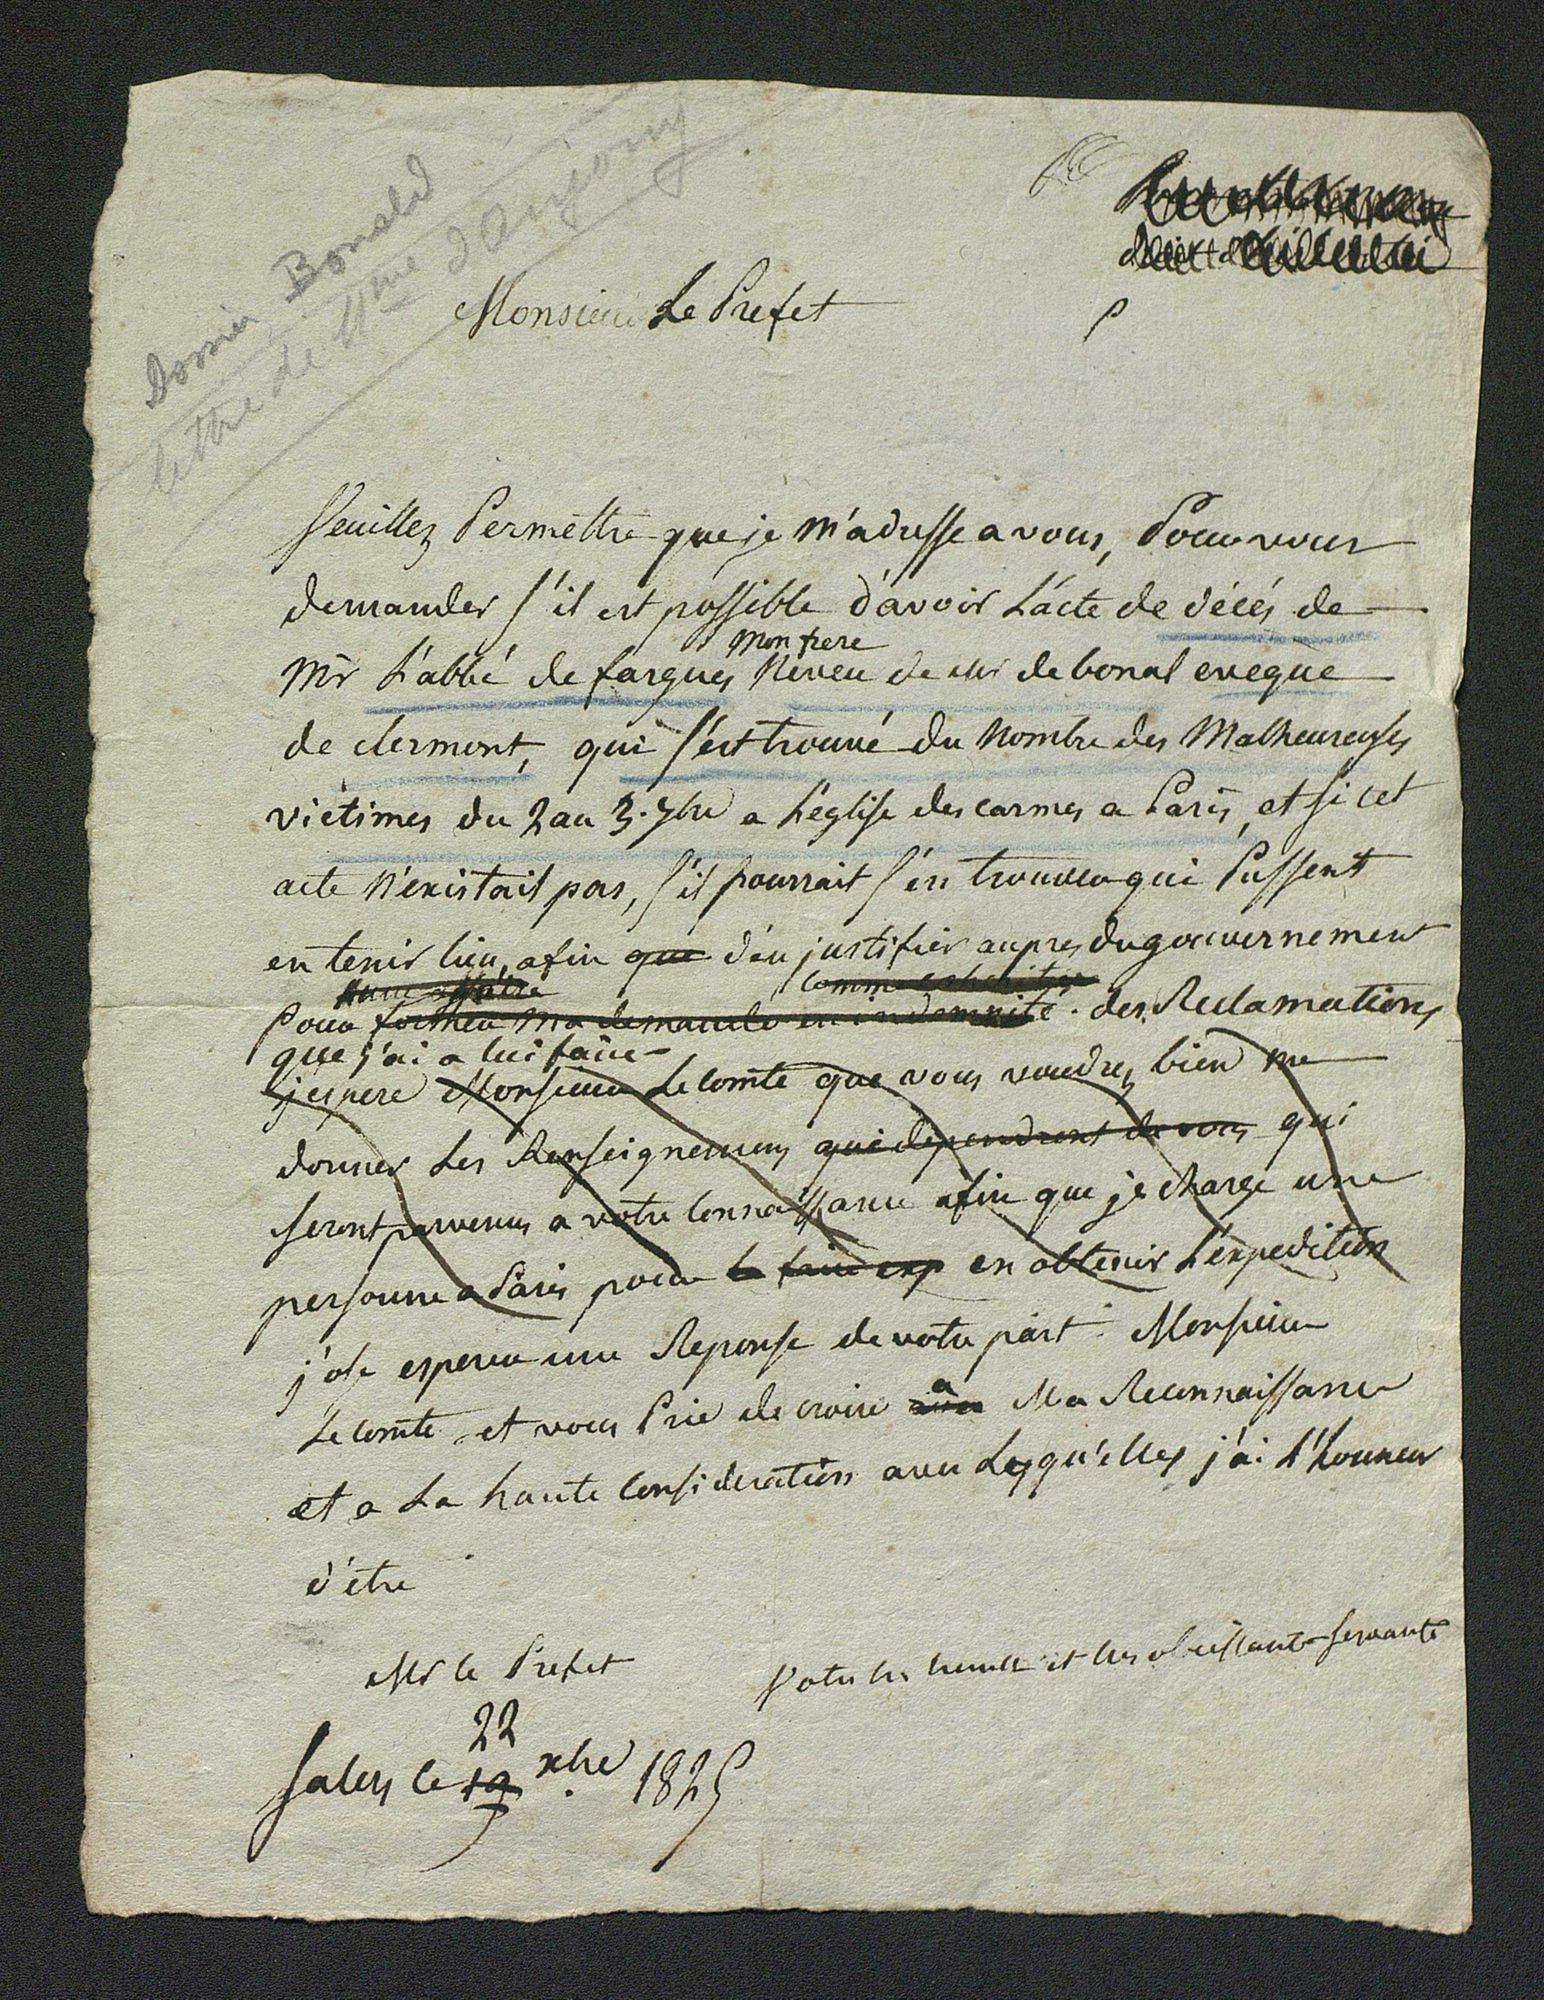 Dossier Bonald
lettre de Mme d'Anjony
Monsieur Le Prefet
Veuillez Permettre que je m'adresse a vous, Pour vous
demander s'il est possible d'avoir L'acte de décés de
mon frere
Mr L'abbé de fargues Neveu de Mr de bonal eveque
de clermont, qui s'est trouvé du Nombre des Malheureuses
victimes du 2 au 3. 7bre a L'eglise des carmes a Paris, et si cet
acte N'existait pas, s'il pourrait s'en trouver qui Pussent
en tenir lieu, afin que d'en justifier aupres du gouvernement
comme
Pour former ma demande en indemnité. des Reclamations
que j'ai a lui faire
j'espere Monsieur Le comte que vous voudrez bien me
donner Les Renseignemens qui dependront de vous qui
seront parvenus a votre Connaissance afin que je charge une
personne a Paris pour la faire exp en obtenir L'expedition
j'ose esperer une Reponse de votre part. Monsieur
Le comte et vous Prie de croire a Ma Reconnaissance
et a La haute Consideration avec Lesqu'elles j'ai L'honneur
d'être
Mr le Prefet
Votre tres humble et tres obeissante servante
22
Salers le 19 xbre 1825